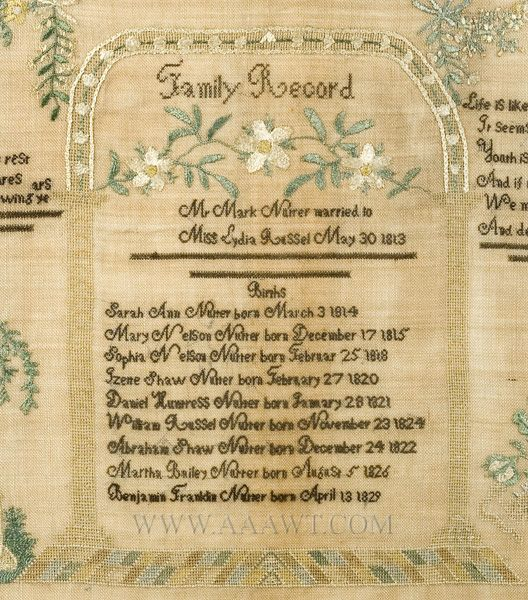 Family Record
Mr Mark Nutter married to
Miss Lydia Russel May 30 1813
Births
Sarah Ann Nutter born March 3 1814
Mary Nelson Nutter born December 17 1815
Sophia Nelson Nutter born Februar 25 1818
Izette Shaw Nutter born February 27 1820
Daniel Huntress Nutter born January 28 1821
William Russel Nutter born November 23 1824
Abraham Shaw Nutter born December 24 1822
Martha Bailey Nutter born August 5 1826
Benjamin Franklin Nutter born April 13 1829
rest
ares
ars
wing ye
Life is like
It seem
Youth is
And if
We m
And de
WWW.AAAWT.COM